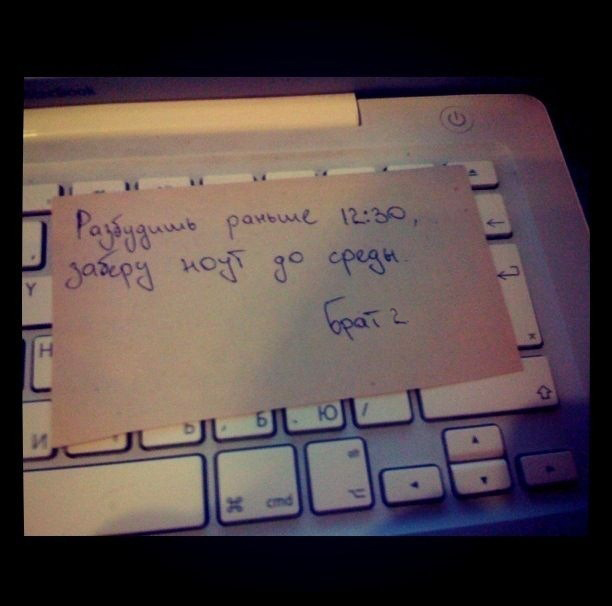 Macbook
Разбудишь раньше 12:30,
заберу ноут до среды.
Брат 2
Y
Н
И
Ь , Б . Ю /
alt
⌘ cmd ⌥